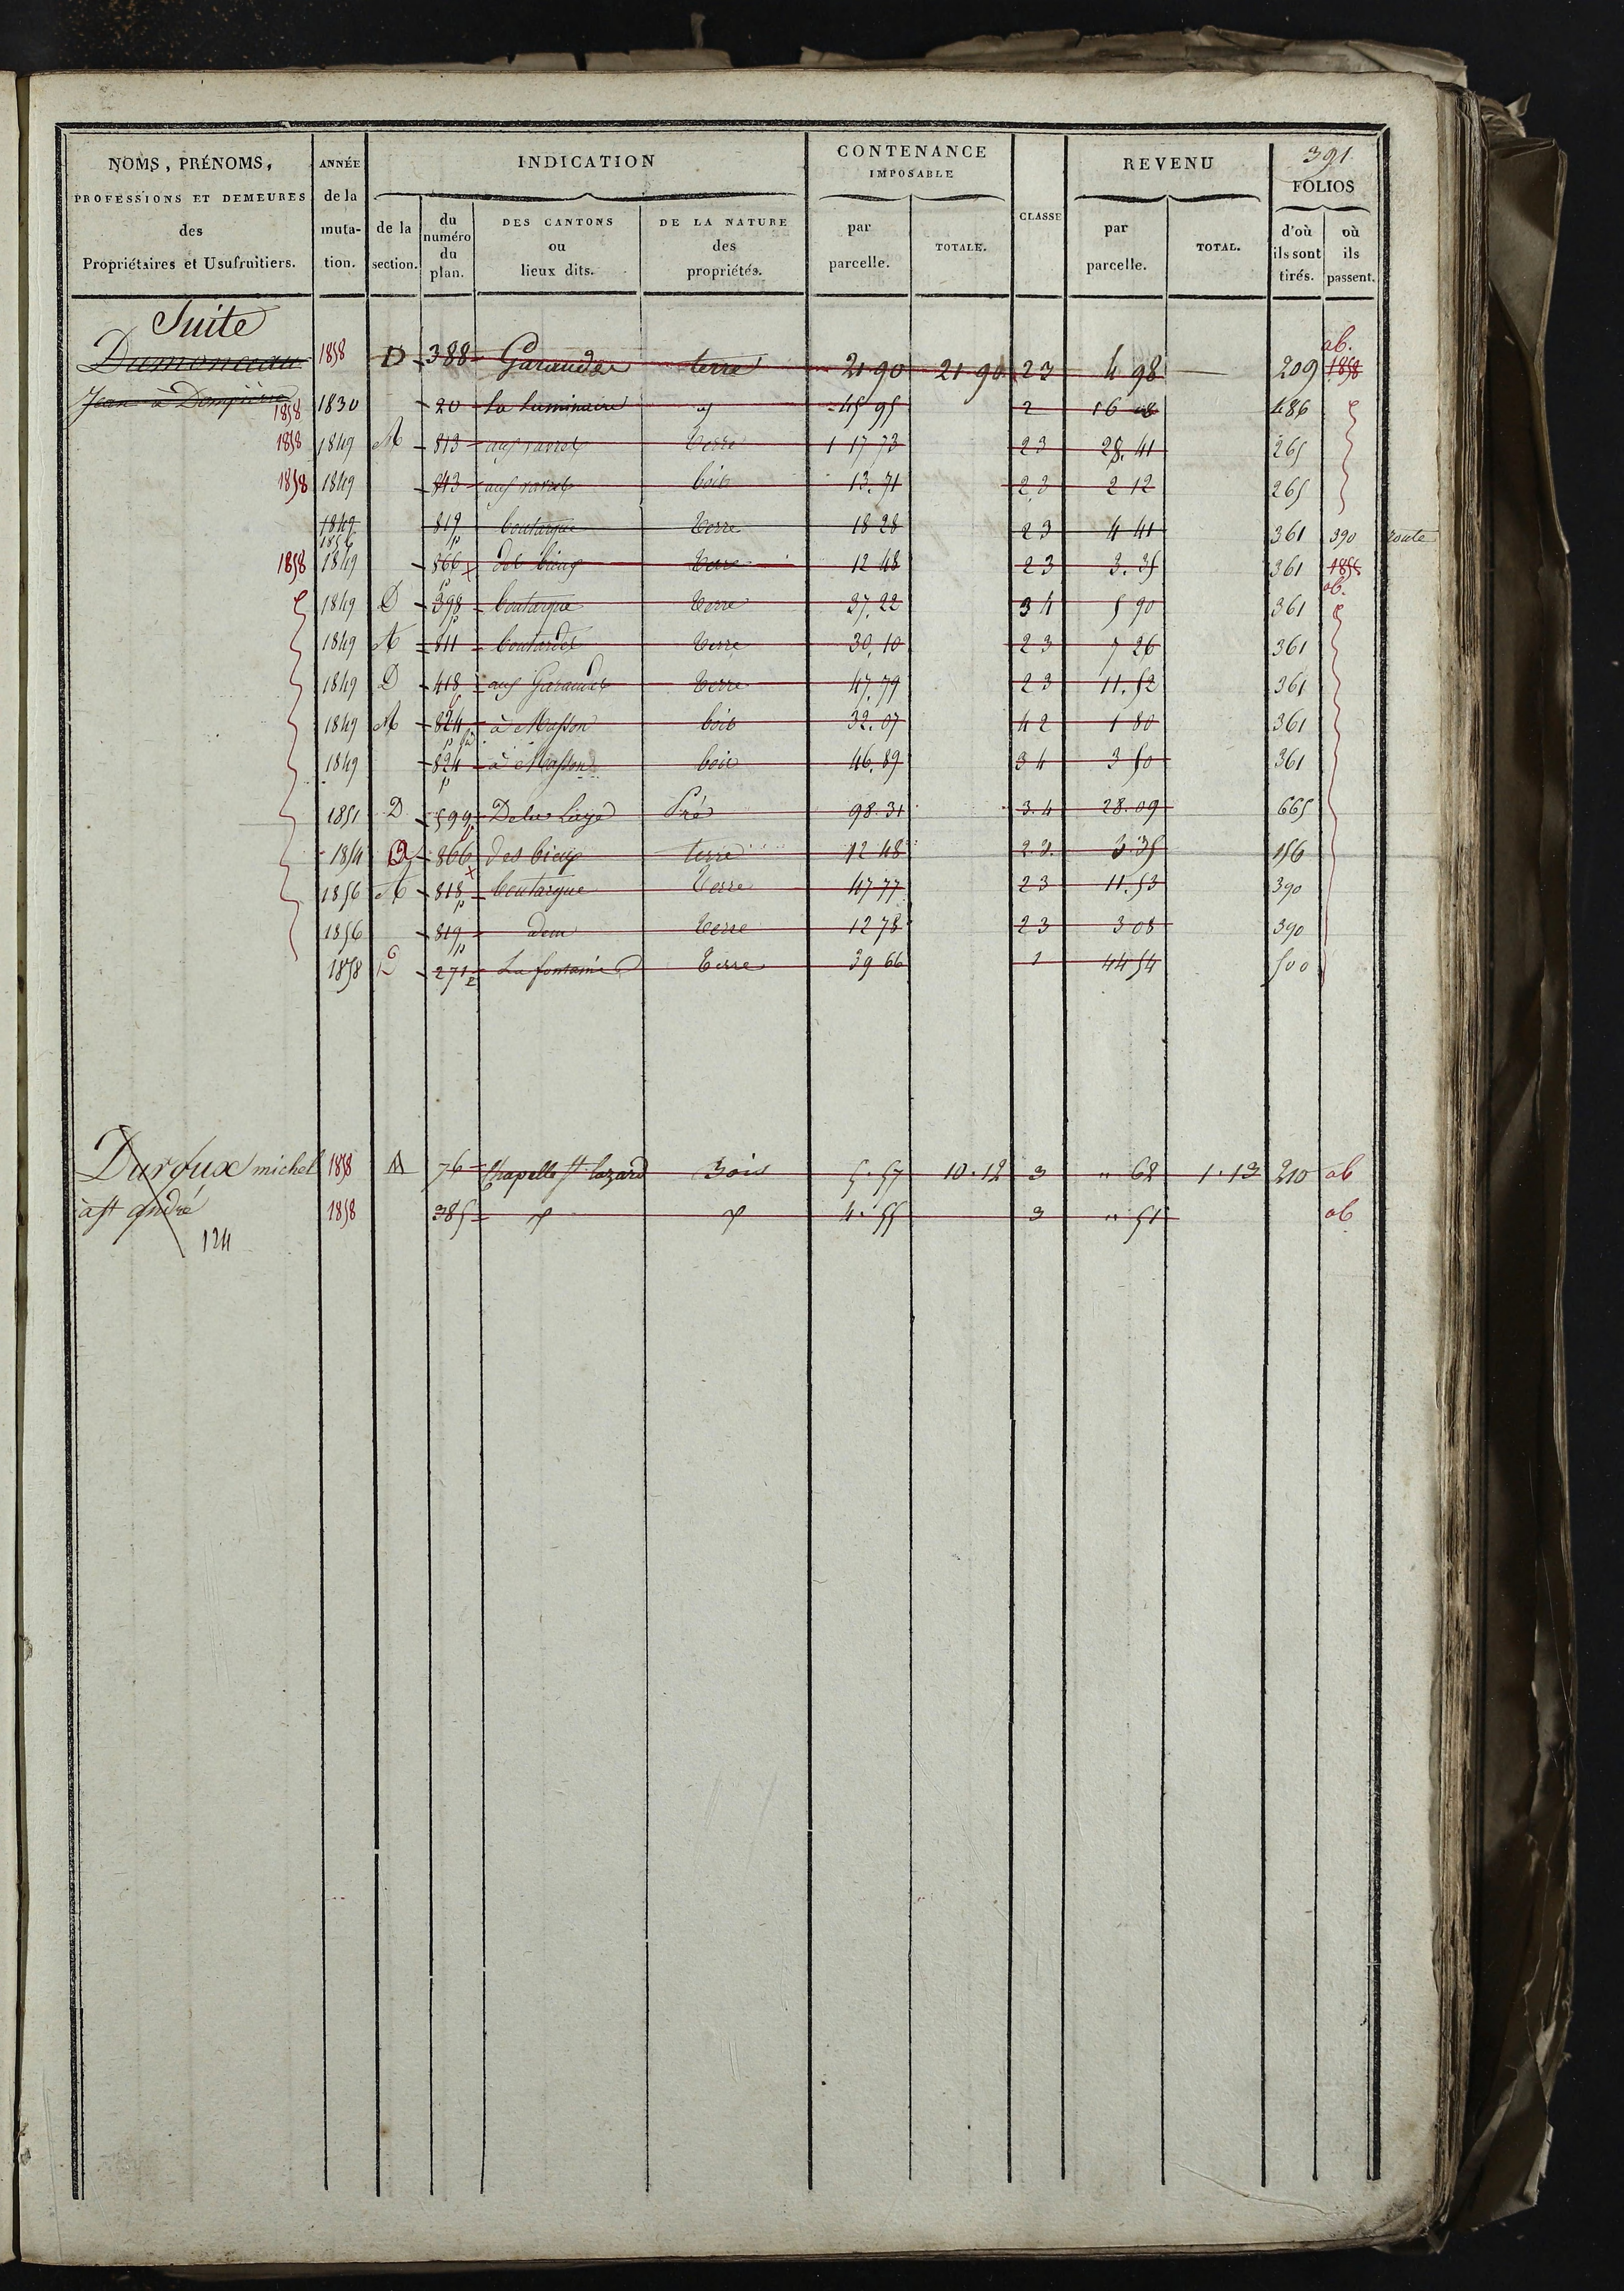 391
NOMS, PRÉNOMS, PROFESSIONS ET DEMEURES des Propriétaires et Usufruitiers.
ANNÉE de la muta-tion.
INDICATION
de la section.
du numéro du plan.
DES CANTONS ou lieux dits.
DE LA NATURE des propriétés.
CONTENANCE IMPOSABLE
par parcelle.
TOTALE.
CLASSE
REVENU
par parcelle.
TOTAL.
FOLIOS
d'où ils sont tirés.
où ils passent.
Suite
ab.
Dumonceau 1858 D 388 Garaudes terre 21 90 21 90 23 4 98 209 1858
Jean à Dompierre 1858 1830 20 La Luminaire 45 95 2 16 08 486
1858 1849 A 813 aux ravres terre 1 17 73 23 28.41 265
1858 1849 843 aux ravres bois 13.71 23 2 12 265
1849 1856 819 p boutarque terre 18 28 23 4 41 361 390 route
1858 1849 866 p des bieux terre 12 48 23 3.35 361 1858 ab.
1849 D 398 p boutarque terre 37.22 34 5 90 361
1849 A 811 boutardes terre 30.10 23 7 26 361
1849 D 418 aux Garaudes terre 47.79 23 11.52 361
1849 A 824 p à Masson bois 32.07 42 1 80 361
1849 824 p à Masson bois 46.89 34 3 50 361
1851 D 599 De la Laye Pré 98.31 3.4 28.09 665
1854 866 des bieux terre 12 48 23. 3.35 156
1856 A 818 p boutarque terre 47 77 23 11.53 390
1856 819 p idem terre 12 78 23 3 08 390
1858 271 La fontaine terre 39 66 1 44 54 500
Duroux michel 1858 A 76 Chapelle St lazard Bois 5.57 10.12 3 " 62 1.13 210 ab
à St andré 1858 385 4.55 3 " 51 ab
124